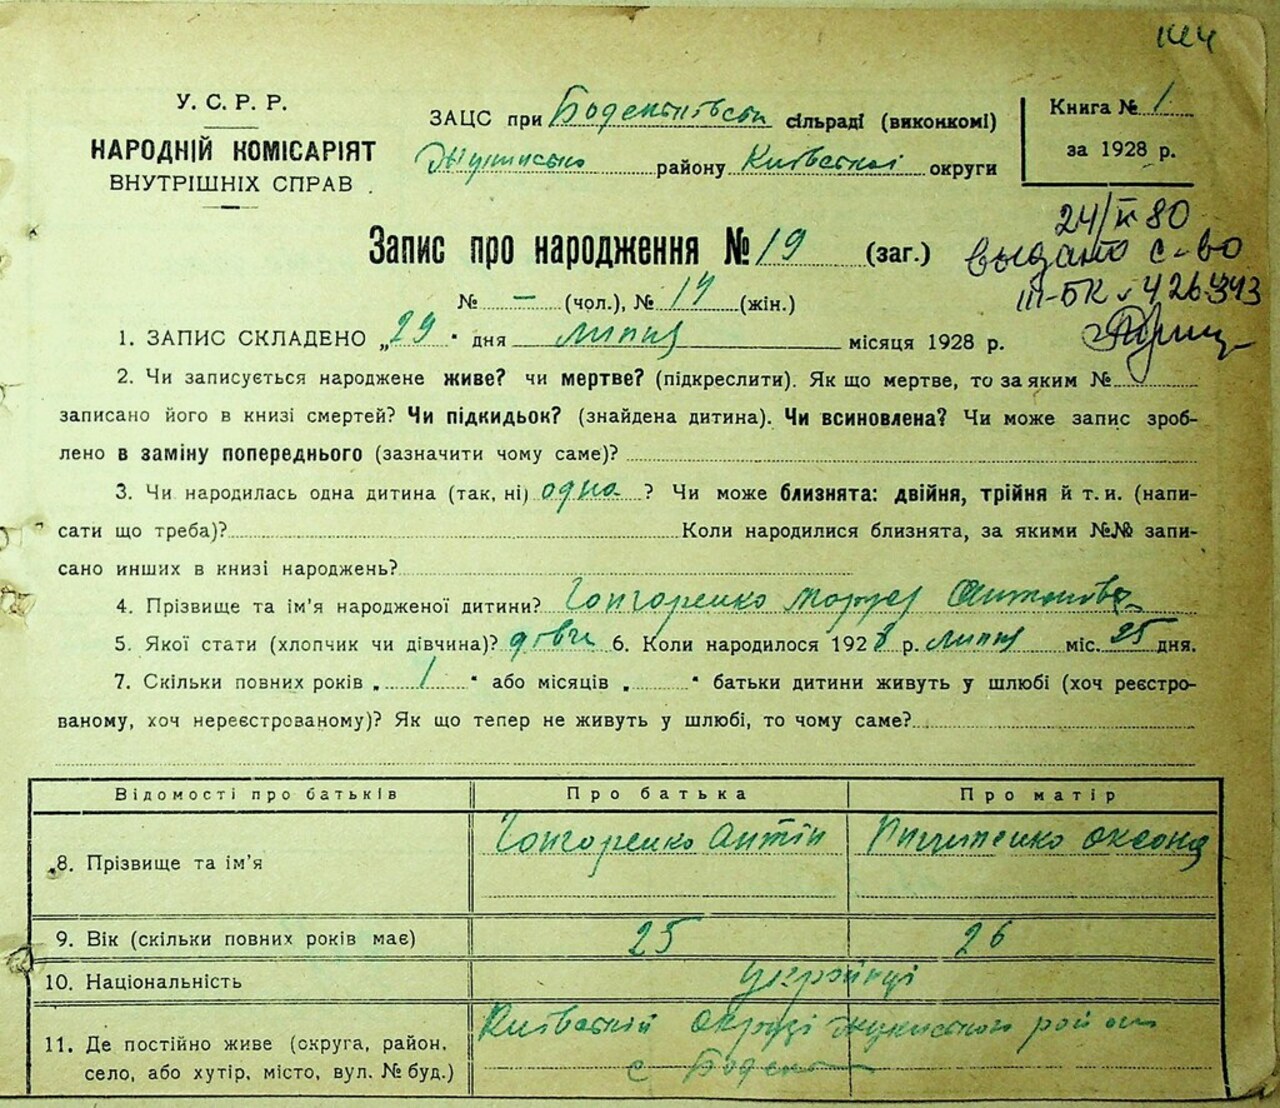 У. С. Р. Р.
НАРОДНІЙ КОМІСАРІЯТ
ВНУТРІШНІХ СПРАВ
ЗАЦС при Боденьківськ сільраді (виконкомі)
району Київської округи
Книга № 1
за 1928 р.
24/II 80
выдано с-во
III-БК № 426343
Запис про народження № 19 (заг.)
№ — (чол.), № 14 (жін.)
1. ЗАПИС СКЛАДЕНО „29" дня липня місяця 1928 р.
2. Чи записується народжене живе? чи мертве? (підкреслити). Як що мертве, то за яким №
записано його в книзі смертей? Чи підкидьок? (знайдена дитина). Чи всиновлена? Чи може запис зроб-
лено в заміну попереднього (зазначити чому саме)?
3. Чи народилась одна дитина (так, ні) одна ? Чи може близнята: двійня, трійня й т. и. (напи-
сати що треба)? Коли народилися близнята, за якими №№ запи-
сано инших в книзі народжень?
4. Прізвище та ім'я народженої дитини? Гончаренко Антонова
5. Якої стати (хлопчик чи дівчина)? дівч 6. Коли народилося 1928 р. липня міс. 25 дня.
7. Скільки повних років „ 1 " або місяців „ " батьки дитини живуть у шлюбі (хоч реєстро-
ваному, хоч нереєстрованому)? Як що тепер не живуть у шлюбі, то чому саме?
Відомості про батьків Про батька Про матір
8. Прізвище та ім'я Гончаренко Антін Оксана
9. Вік (скільки повних років має) 25 26
10. Національність українці
11. Де постійно живе (округа, район, село, або хутір, місто, вул. № буд.) Київській округі району
с Боденьк